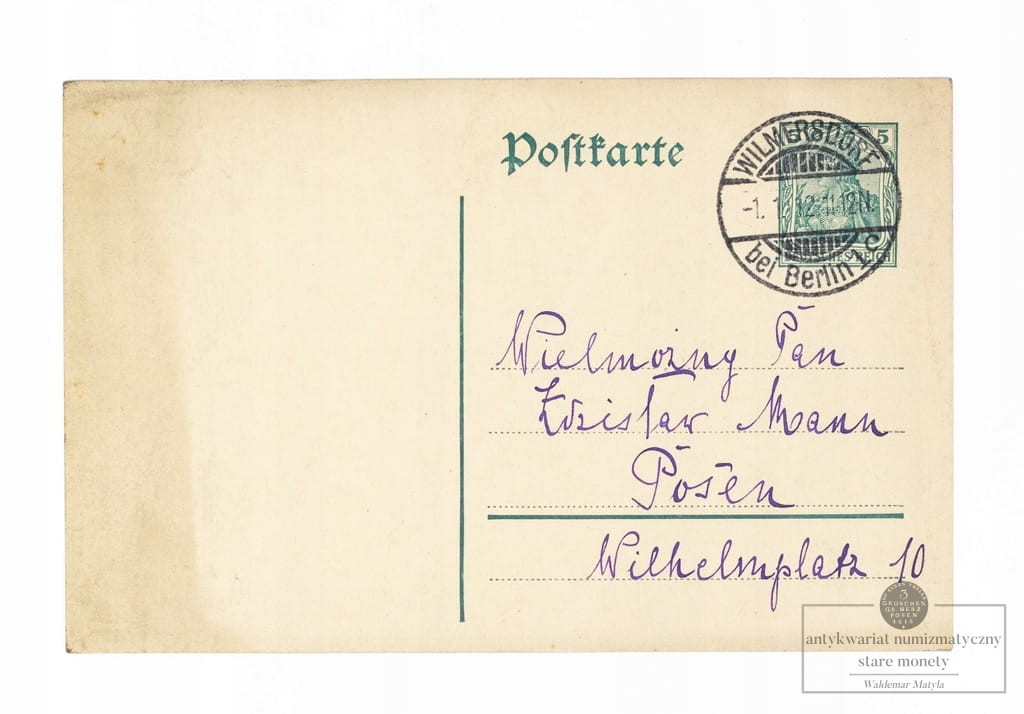 Postkarte
5
WILMERSDORF
-1. 1. 12. 11-12N.
bei Berlin 1 c
DEUTSCHES REICH
Wielmożny Pan
Zdzisław Mann
Posen
Wilhelmplatz 10
3
GROSCHEN
GR. HERZ
POSEN
1816
antykwariat numizmatyczny
stare monety
Waldemar Matyla